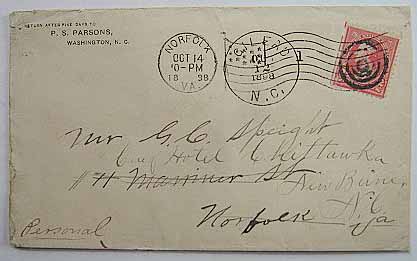 RETURN AFTER FIVE DAYS TO
P. S. PARSONS,
WASHINGTON, N. C.
NORFOLK
OCT 14
0-PM
18 98
VA.
1898
N.C.
1
Mr G. C. Speight
Hotel Chattawka
# 11 Marriner St New Berne,
Norfolk N.C.
Va
Personal